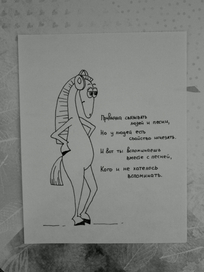 Прикольно связывать
людей и песни,
Но у людей есть
свойство исчезать.
И вот ты вспоминаешь
вместе с песней,
Кого и не хотелось
вспоминать.